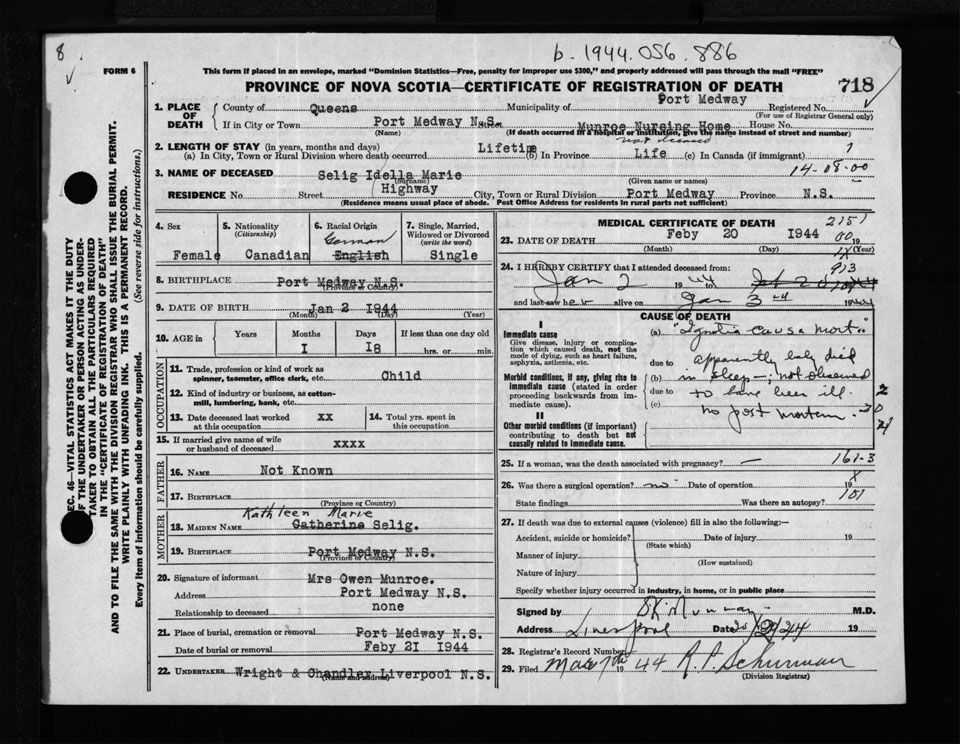 8
b. 1944.056.886
FORM 6
This form if placed in an envelope, marked "Dominion Statistics—Free, penalty for improper use $300," and properly addressed will pass through the mail "FREE"
PROVINCE OF NOVA SCOTIA—CERTIFICATE OF REGISTRATION OF DEATH
718
1. PLACE OF DEATH
County of Queens Municipality of Port Medway Registered No.
(For use of Registrar General only)
If in City or Town Port Medway N.S. Street Munroe Nursing Home House No.
(Name) (If death occurred in a hospital or institution, give the name instead of street and number)
2. LENGTH OF STAY (in years, months and days)
not deceased
(a) In City, Town or Rural Division where death occurred Lifetime (b) In Province Life (c) In Canada (if immigrant)
14-08-00
3. NAME OF DECEASED Selig Idella Marie
(Surname) (Given name or names)
RESIDENCE No. Street Highway City, Town or Rural Division Port Medway Province N.S.
(Residence means usual place of abode. Post Office Address for residents in rural parts not sufficient)
SEC. 46—VITAL STATISTICS ACT MAKES IT THE DUTY
OF THE UNDERTAKER OR PERSON ACTING AS UNDER-
TAKER TO OBTAIN ALL THE PARTICULARS REQUIRED
IN THE "CERTIFICATE OF REGISTRATION OF DEATH"
AND TO FILE THE SAME WITH THE DIVISION REGISTRAR WHO SHALL ISSUE THE BURIAL PERMIT.
WRITE PLAINLY WITH UNFADING INK. THIS IS A PERMANENT RECORD.
Every item of information should be carefully supplied. (See reverse side for instructions.)
4. Sex
Female
5. Nationality
(Citizenship)
Canadian
6. Racial Origin
German
English
7. Single, Married, Widowed or Divorced
(write the word)
Single
8. BIRTHPLACE Port Medway N.S.
(Province or Country)
9. DATE OF BIRTH Jan 2 1944
(Month) (Day) (Year)
10. AGE in
Years Months Days If less than one day old
I I8 hrs. or min.
OCCUPATION
11. Trade, profession or kind of work as
spinner, teamster, office clerk, etc. Child
12. Kind of industry or business, as cotton-
mill, lumbering, bank, etc.
13. Date deceased last worked
at this occupation XX
14. Total yrs. spent in
this occupation
15. If married give name of wife
or husband of deceased XXXX
FATHER
16. NAME Not Known
17. BIRTHPLACE
(Province or Country)
MOTHER
Kathleen Marie
18. MAIDEN NAME Catherine Selig.
19. BIRTHPLACE Port Medway N.S.
(Province or Country)
20. Signature of informant Mrs Owen Munroe.
Address Port Medway N.S.
Relationship to deceased none
21. Place of burial, cremation or removal Port Medway N.S.
Date of burial or removal Feby 2I 1944
22. UNDERTAKER Wright & Chandlex Liverpool N.S.
(Name and address)
MEDICAL CERTIFICATE OF DEATH
2151
23. DATE OF DEATH Feby 20 1944
(Month) (Day) (Year)
913
24. I HEREBY CERTIFY that I attended deceased from:
Jan 2 1944
and last saw her alive on Jan 3rd 1944
CAUSE OF DEATH
I
Immediate cause
Give disease, injury or complica-
tion which caused death, not the
mode of dying, such as heart failure,
asphyxia, asthenia, etc.
Morbid conditions, if any, giving rise to
immediate cause (stated in order
proceeding backwards from im-
mediate cause).
II
Other morbid conditions (if important)
contributing to death but not
causally related to immediate cause.
(a) "Ignotia causa mort.."
due to apparently baby died
(b) in sleep—; not observed
due to to have been ill.
(c) no post mortem.
25. If a woman, was the death associated with pregnancy? —
161-3
26. Was there a surgical operation? no Date of operation 19
State findings Was there an autopsy?
27. If death was due to external causes (violence) fill in also the following:—
Accident, suicide or homicide? Date of injury 19
(State which)
Manner of injury
(How sustained)
Nature of injury
Specify whether injury occurred in industry, in home, or in public place
Signed by Murray M.D.
Address Liverpool Date 19
28. Registrar's Record Number
29. Filed Mar 7th 19 44 R. P. Schurman
(Division Registrar)